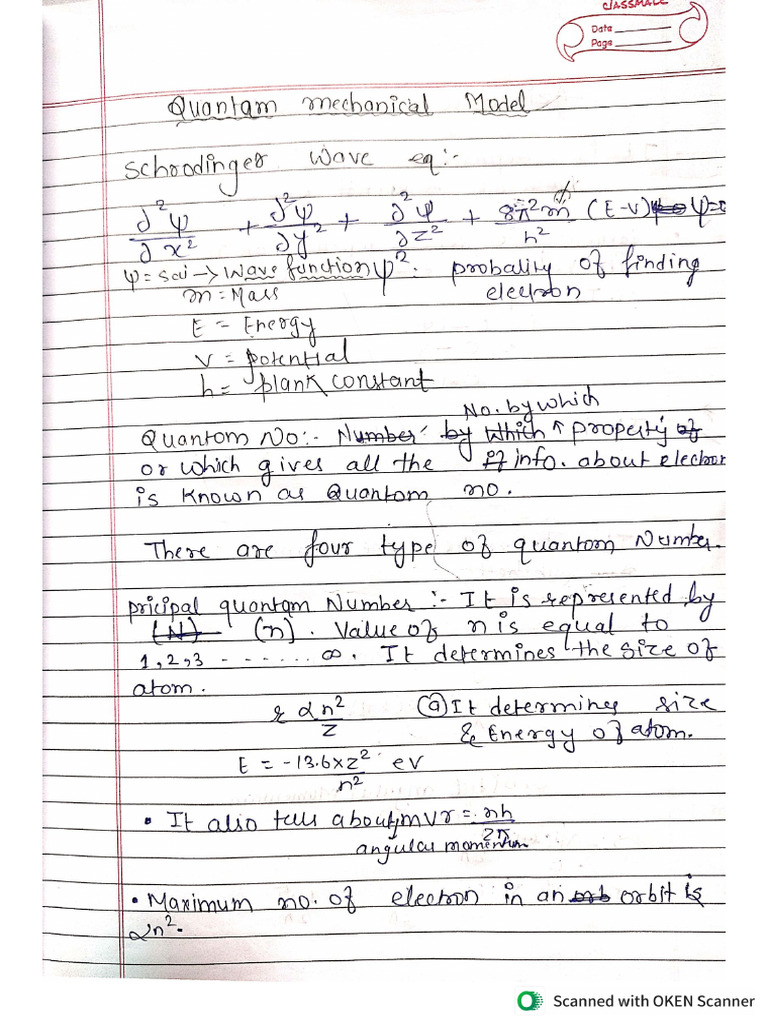 classmate
Date
Page
Quantam mechanical Model
Schrodinger wave eq:-
∂²ψ/∂x² + ∂²ψ/∂y² + ∂²ψ/∂z² + 8π²m/h² (E-V)ψ=0
ψ = sai → Wave function ψ²: probality of finding
m = Mass electron
E = Energy
V = potential
h = plank constant
No. by which
Quantom No:- Number by which ↑ property of
or which gives all the info. about electron
is known as Quantom no.
There are four type of quantom Number.
pricipal quantam Number :- It is represented by
(N) (n). Value of n is equal to
1,2,3 - - - - ..... ∞. It determines the size of
atom.
r α n²/z ⓐ It determines size
& Energy of atom.
E = -13.6xz²/n² ev
• It also tells about mvr = nh/2π
angular momentum
• Maximum no. of electron in an orb orbit is
2n².
Scanned with OKEN Scanner